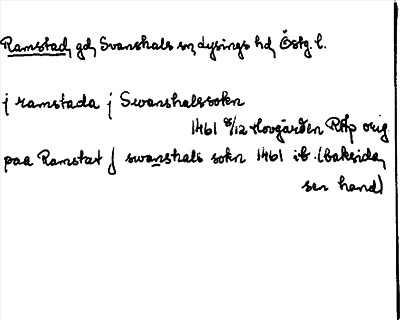 Ramstad, gd, Svanshals sn, Lysings hd, Östg. l.
j ramstada j Swanshalssokn
1461 8/12 Hovgården RAp orig
paa Ramstat j swanshals sokn 1461 ib. (baksida,
sen hand)